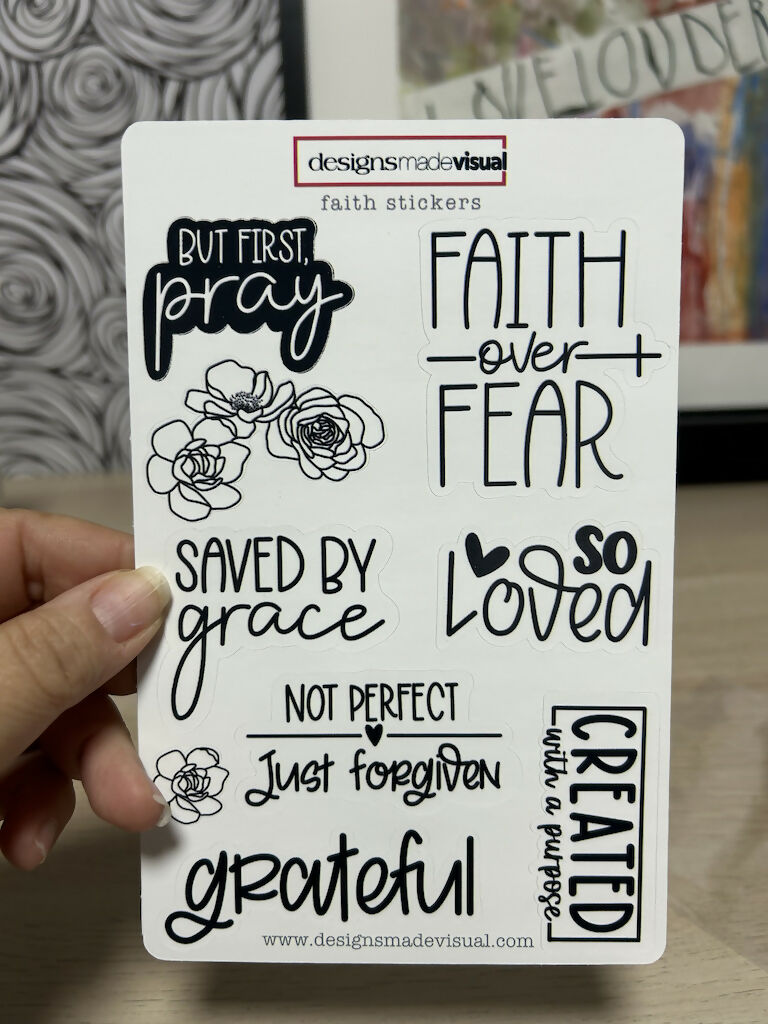 LOVELOUDER
designsmadevisual
faith stickers
BUT FIRST,
pray
FAITH
over
FEAR
SAVED BY
grace
SO
Loved
NOT PERFECT
Just forgiven
CREATED
with a purpose
grateful
www.designsmadevisual.com